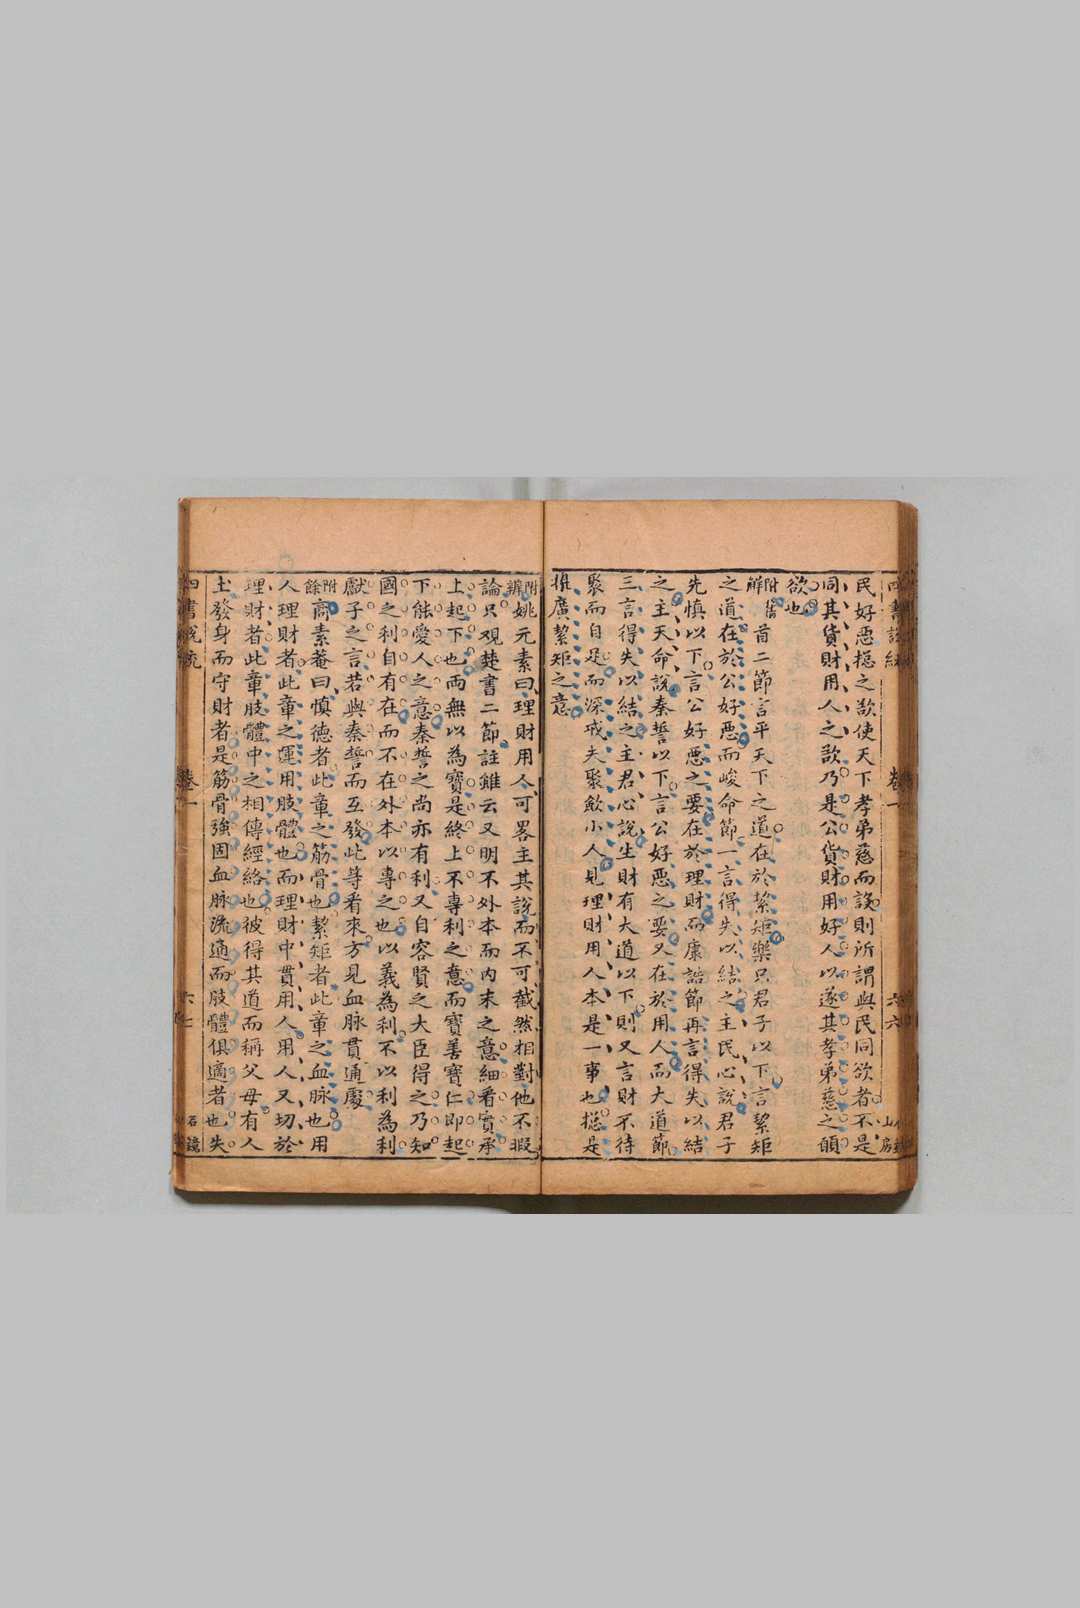 四書說統 卷一 六六 山房
民好惡摠之欲使天下孝弟慈而談則所謂與民同欲者不是
同其貨財用人之欲乃是公貨財用好人以遂其孝弟慈之願
欲也
附舊解 首二節言平天下之道在於絜矩樂只君子以下言絜矩
之道在於公好惡而峻命節一言得失以結之主民心說君子
先慎以下言公好惡之要在於理財而康誥節再言得失以結
之主天命說秦誓以下言公好惡之要又在於用人而大道節
三言得失以結之主君心說生財有大道以下則又言財不待
聚而自足而深戒夫聚斂小人見理財用人本是一事也摠是
推廣絜矩之意
附辨 姚元素曰理財用人可畧主其說而不可截然相對他不暇
論只观楚書二節註雖云又明不外本而內末之意細看實承
上起下也而無以為寶是終上不專利之意而寶善寶仁即起
下能愛人之意秦誓之尚亦有利又自容賢之大臣得之乃知
國之利自有在而不在外本以專之也以義為利不以利為利
獻子之言若與秦誓而互發此等看來方見血脉貫通處
附餘 商素菴曰慎德者此章之筋骨也絜矩者此章之血脉也用
人理財者此章之運用肢體也而理財中貫用人用人又切於
理財者此章肢體中之相傳經絡也彼得其道而稱父母有人
土發身而守財者是筋骨強固血脉流通而肢體俱適者也失
四書說統 卷一 六七 石鏡